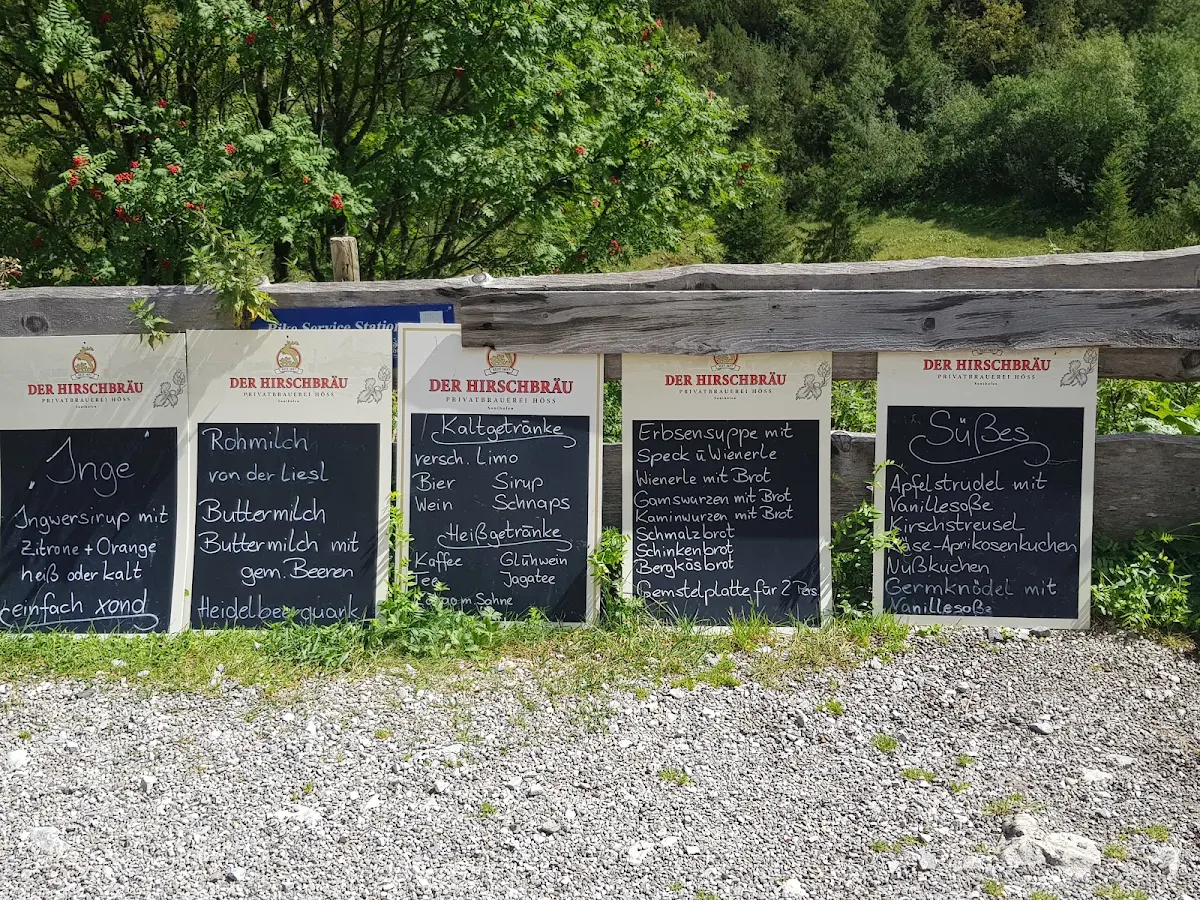 Bike Service Station
DER HIRSCHBRÄU
PRIVATBRAUEREI HÖSS
Sonthofen
Inge
Ingwersirup mit
Zitrone + Orange
heiß oder kalt
einfach xond
DER HIRSCHBRÄU
PRIVATBRAUEREI HÖSS
Sonthofen
Rohmilch
von der Liesl
Buttermilch
Buttermilch mit
gem. Beeren
Heidelbeerquark
DER HIRSCHBRÄU
PRIVATBRAUEREI HÖSS
Sonthofen
Kaltgetränke
versch. Limo
Bier Sirup
Wein Schnaps
Heißgetränke
Kaffee Glühwein
Tee Jagatee
m Sahne
DER HIRSCHBRÄU
PRIVATBRAUEREI HÖSS
Sonthofen
Erbsensuppe mit
Speck u Wienerle
Wienerle mit Brot
Gamswurzen mit Brot
Kaminwurzen mit Brot
Schmalzbrot
Schinkenbrot
Bergkäsbrot
Gemstelplatte für 2 Pers
DER HIRSCHBRÄU
PRIVATBRAUEREI HÖSS
Sonthofen
Süßes
Apfelstrudel mit
Vanillesoße
Kirschstreusel
Käse-Aprikosenkuchen
Nüßkuchen
Germknödel mit
Vanillesoße